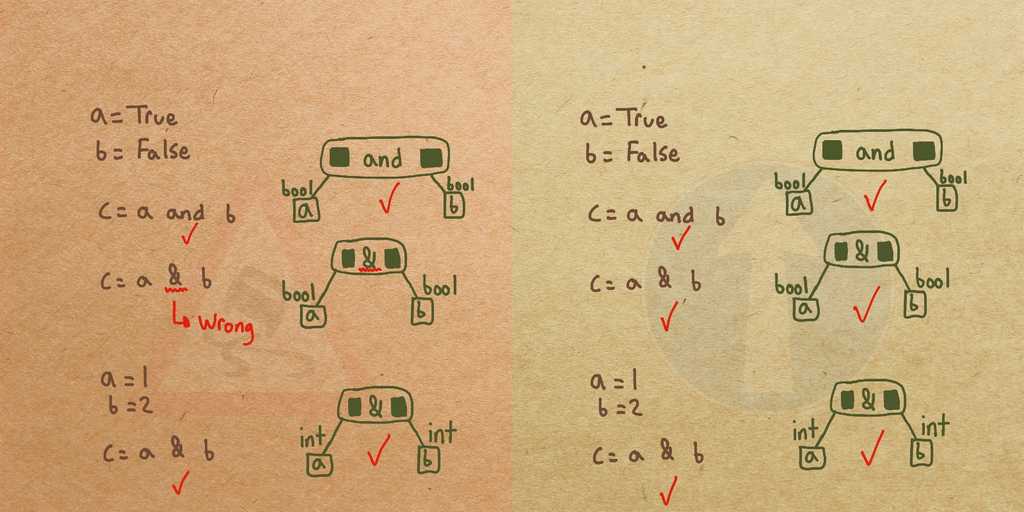 a = True
b = False
c = a and b
c = a & b
wrong
a = 1
b = 2
c = a & b
and
bool
bool
a
b
&
bool
bool
a
b
&
int
int
a
b
a = True
b = False
c = a and b
c = a & b
a = 1
b = 2
c = a & b
and
bool
bool
a
b
&
bool
bool
a
b
&
int
int
a
b